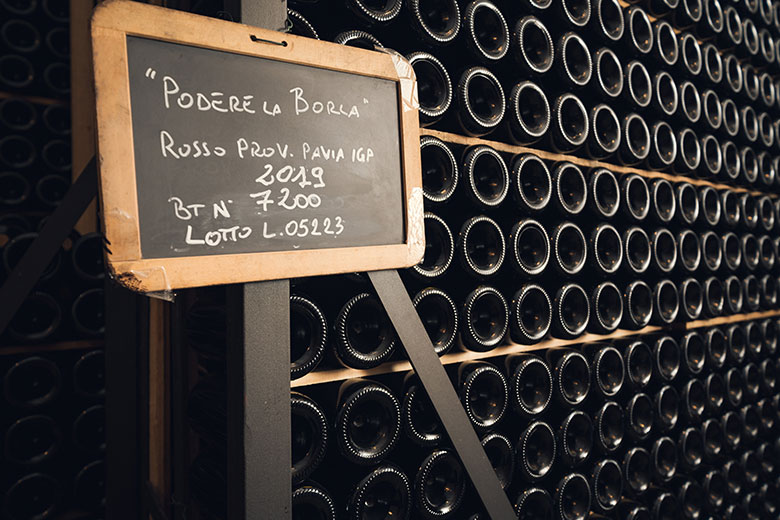 "PODERE LA BORLA"
ROSSO PROV. PAVIA IGP
2019
BT N° 7200
LOTTO L.05223